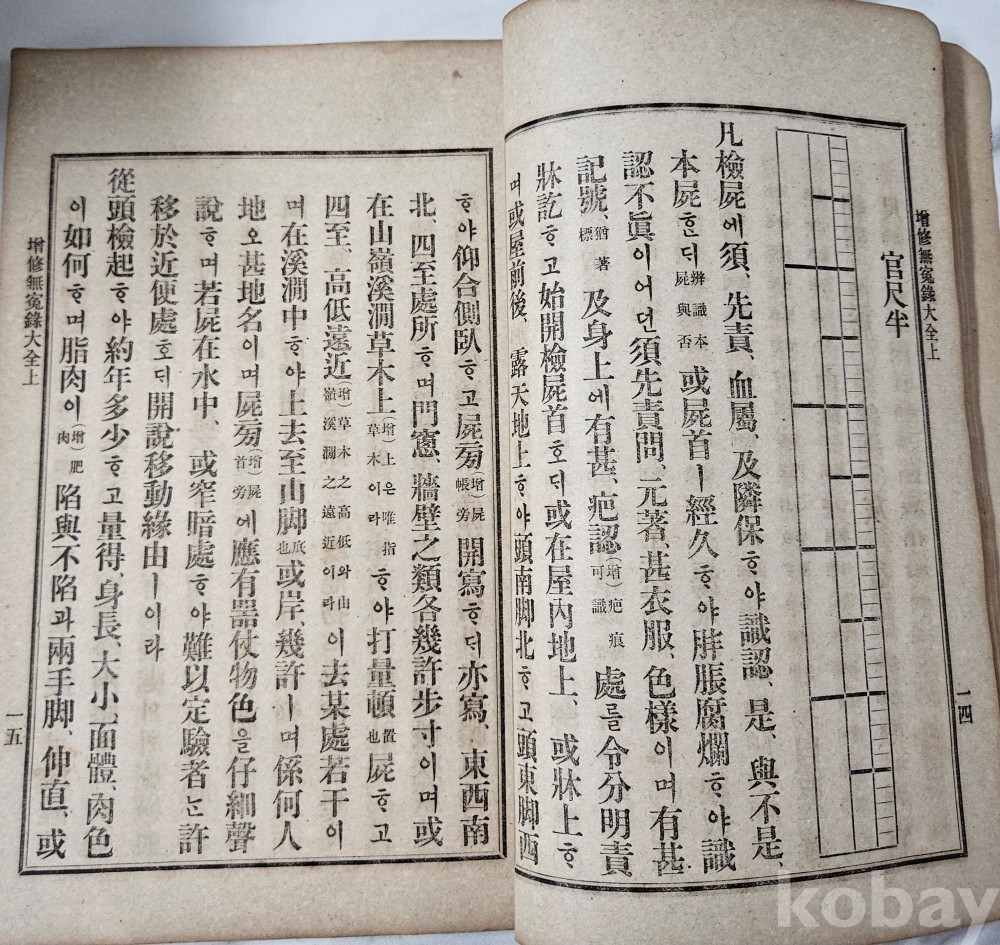 增修無冤錄大全上
一四
官尺半
凡檢屍에須、先責、血屬、及隣保ᄒᆞ야識認、是、與不是、
本屍호ᄃᆡ辨識本屍與否或屍首ㅣ經久ᄒᆞ야胖脹腐爛ᄒᆞ야識
認不眞이어던須先責問、元著、甚衣服、色樣이며有甚
記號、猶著標及身上에有甚、疤認(增)疤痕可識處를令分明責
牀訖ᄒᆞ고始開檢屍首호ᄃᆡ或在屋內地上、或牀上ᄒᆞ
며或屋前後、露天地上ᄒᆞ야頭南脚北ᄒᆞ고頭東脚西
ᄒᆞ야仰合側臥ᄒᆞ고屍旁(增)屍帳旁開寫호ᄃᆡ亦寫、東西南
北、四至處所ᄒᆞ며門窓、牆壁之類各幾許步寸이며或
在山嶺溪澗草木上(增)上은唯指草木이라ᄒᆞ야打量頓置也屍ᄒᆞ고
四至、高低遠近(增)草木之高低와山嶺溪澗之遠近이라이去某處若干이
며在溪澗中ᄒᆞ야上去至山脚底也或岸、幾許ㅣ며係何人
地오甚地名이며屍旁(增)屍首旁에應有器仗物色을仔細聲
說ᄒᆞ며若屍在水中、或窄暗處ᄒᆞ야難以定驗者ᄂᆞᆫ許
移於近便處호ᄃᆡ開說移動緣由ㅣ이라
從頭檢起ᄒᆞ야約年多少ᄒᆞ고量得、身長、大小、面體、肉色
이如何ᄒᆞ며脂肉이(增)肥肉陷與不陷과兩手脚、伸直、或
增修無冤錄大全上
一五
kobay